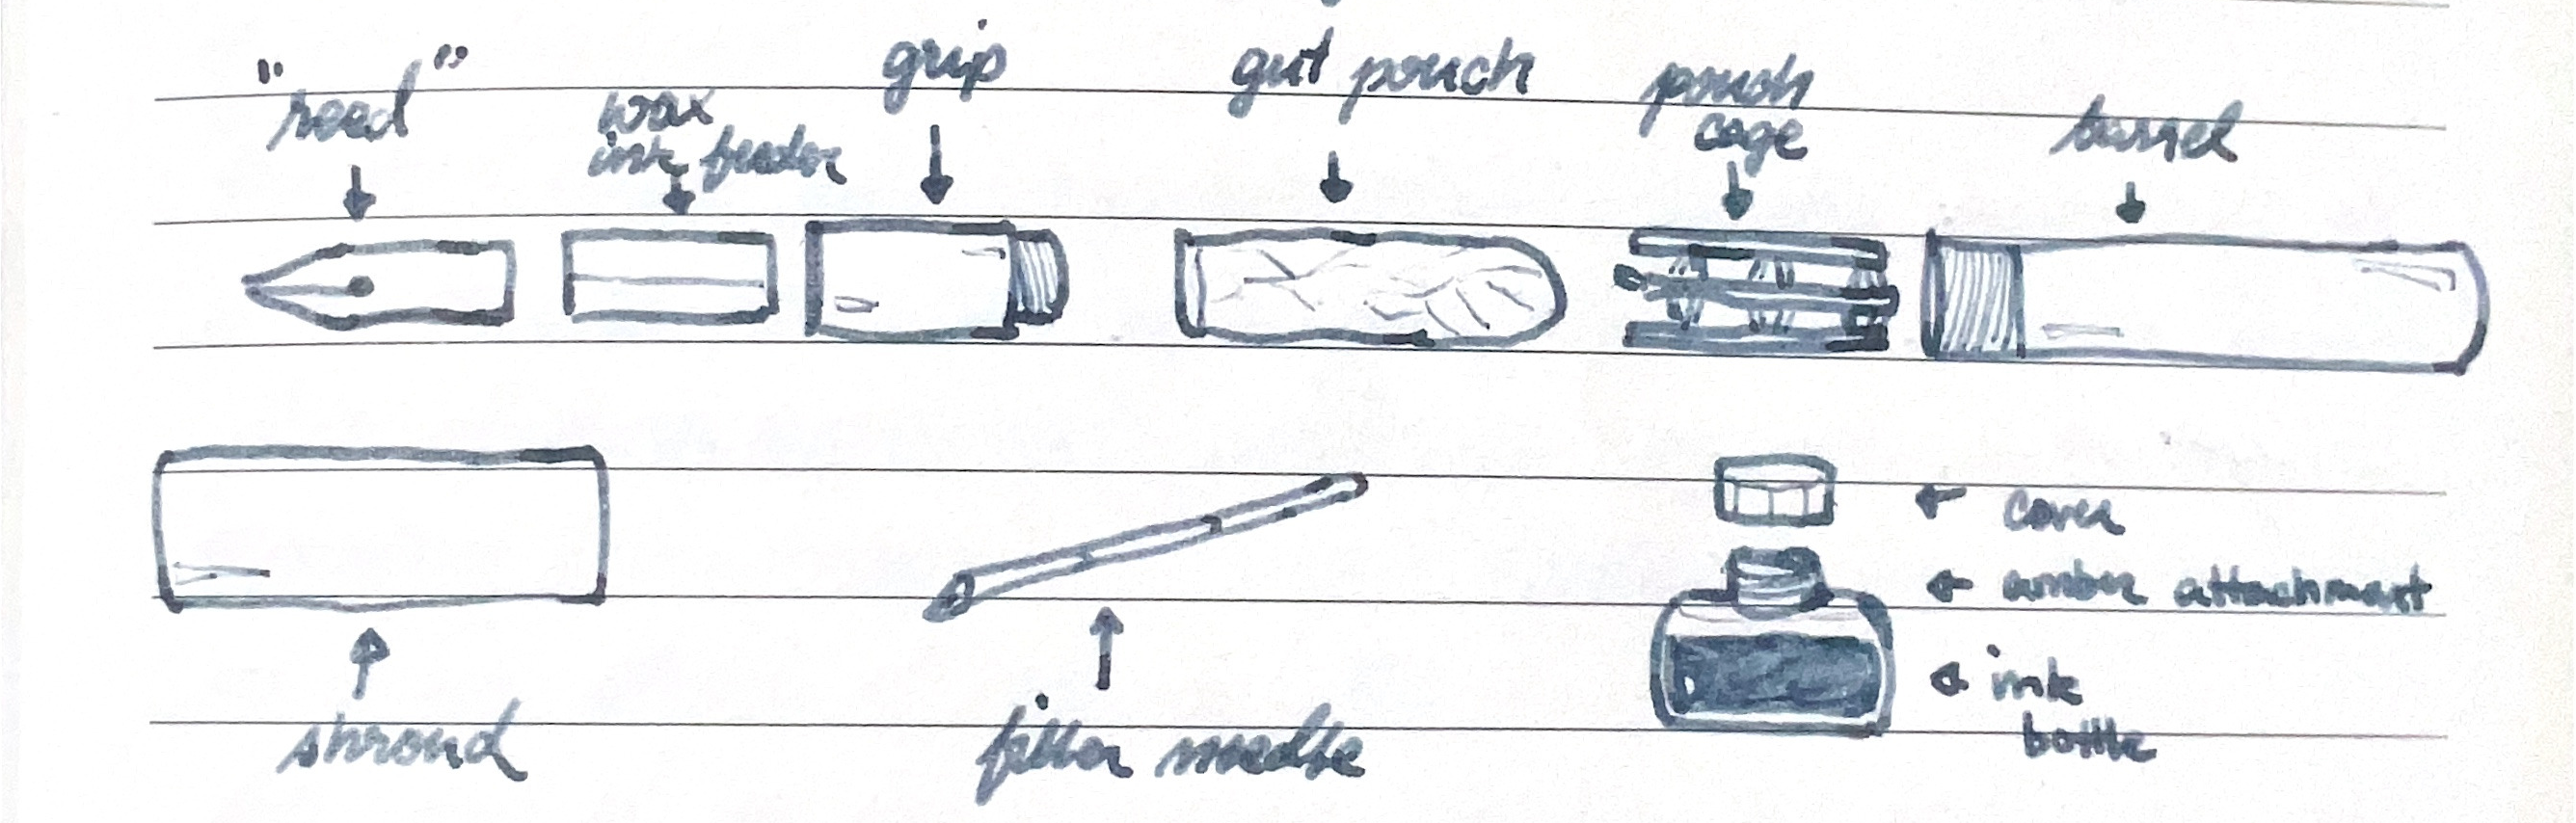 "reed"
wax
ink feeder
grip
gut pouch
pouch
cage
barrel
shroud
filler needle
cover
amber attachment
ink
bottle